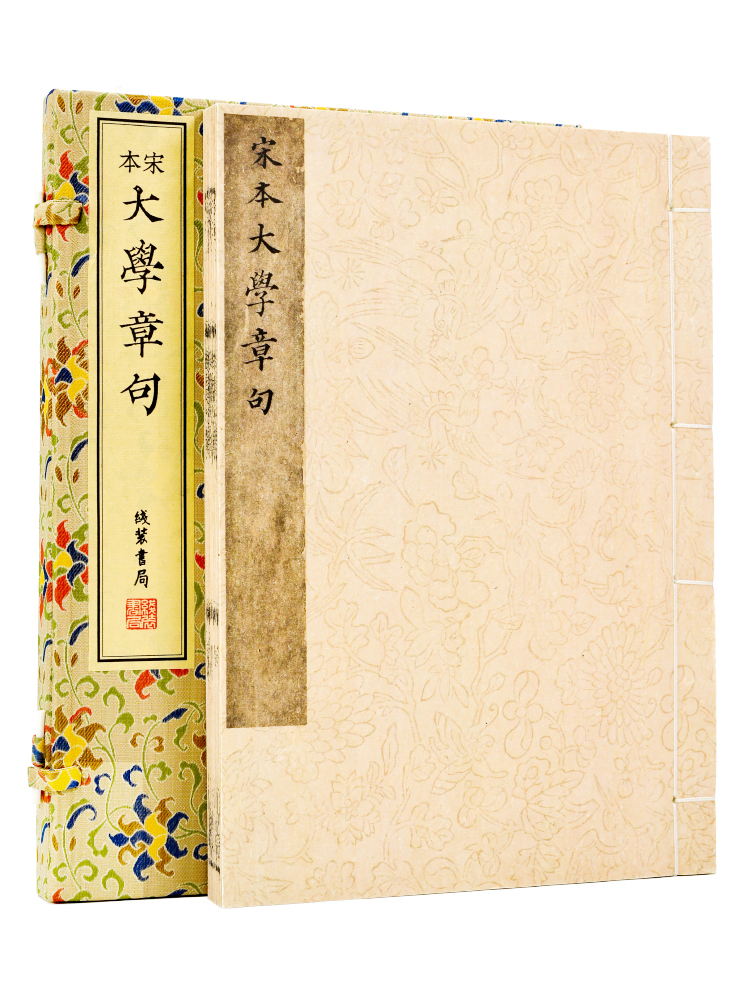 宋本
大學章句
线装書局
线装書局
宋本大學章句